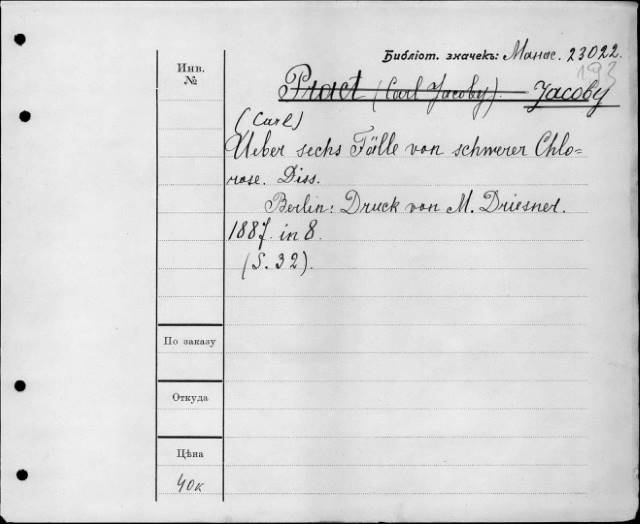 Библіот. значекъ: Манас. 23022.
193
Инв.
№
Pract (Carl Jacoby). Jacoby
(Carl)
Ueber sechs Fälle von schwerer Chlo=
rose. Diss.
Berlin: Druck von M. Driesner.
1887. in 8.
(S. 32).
По заказу
Откуда
Цѣна
40к